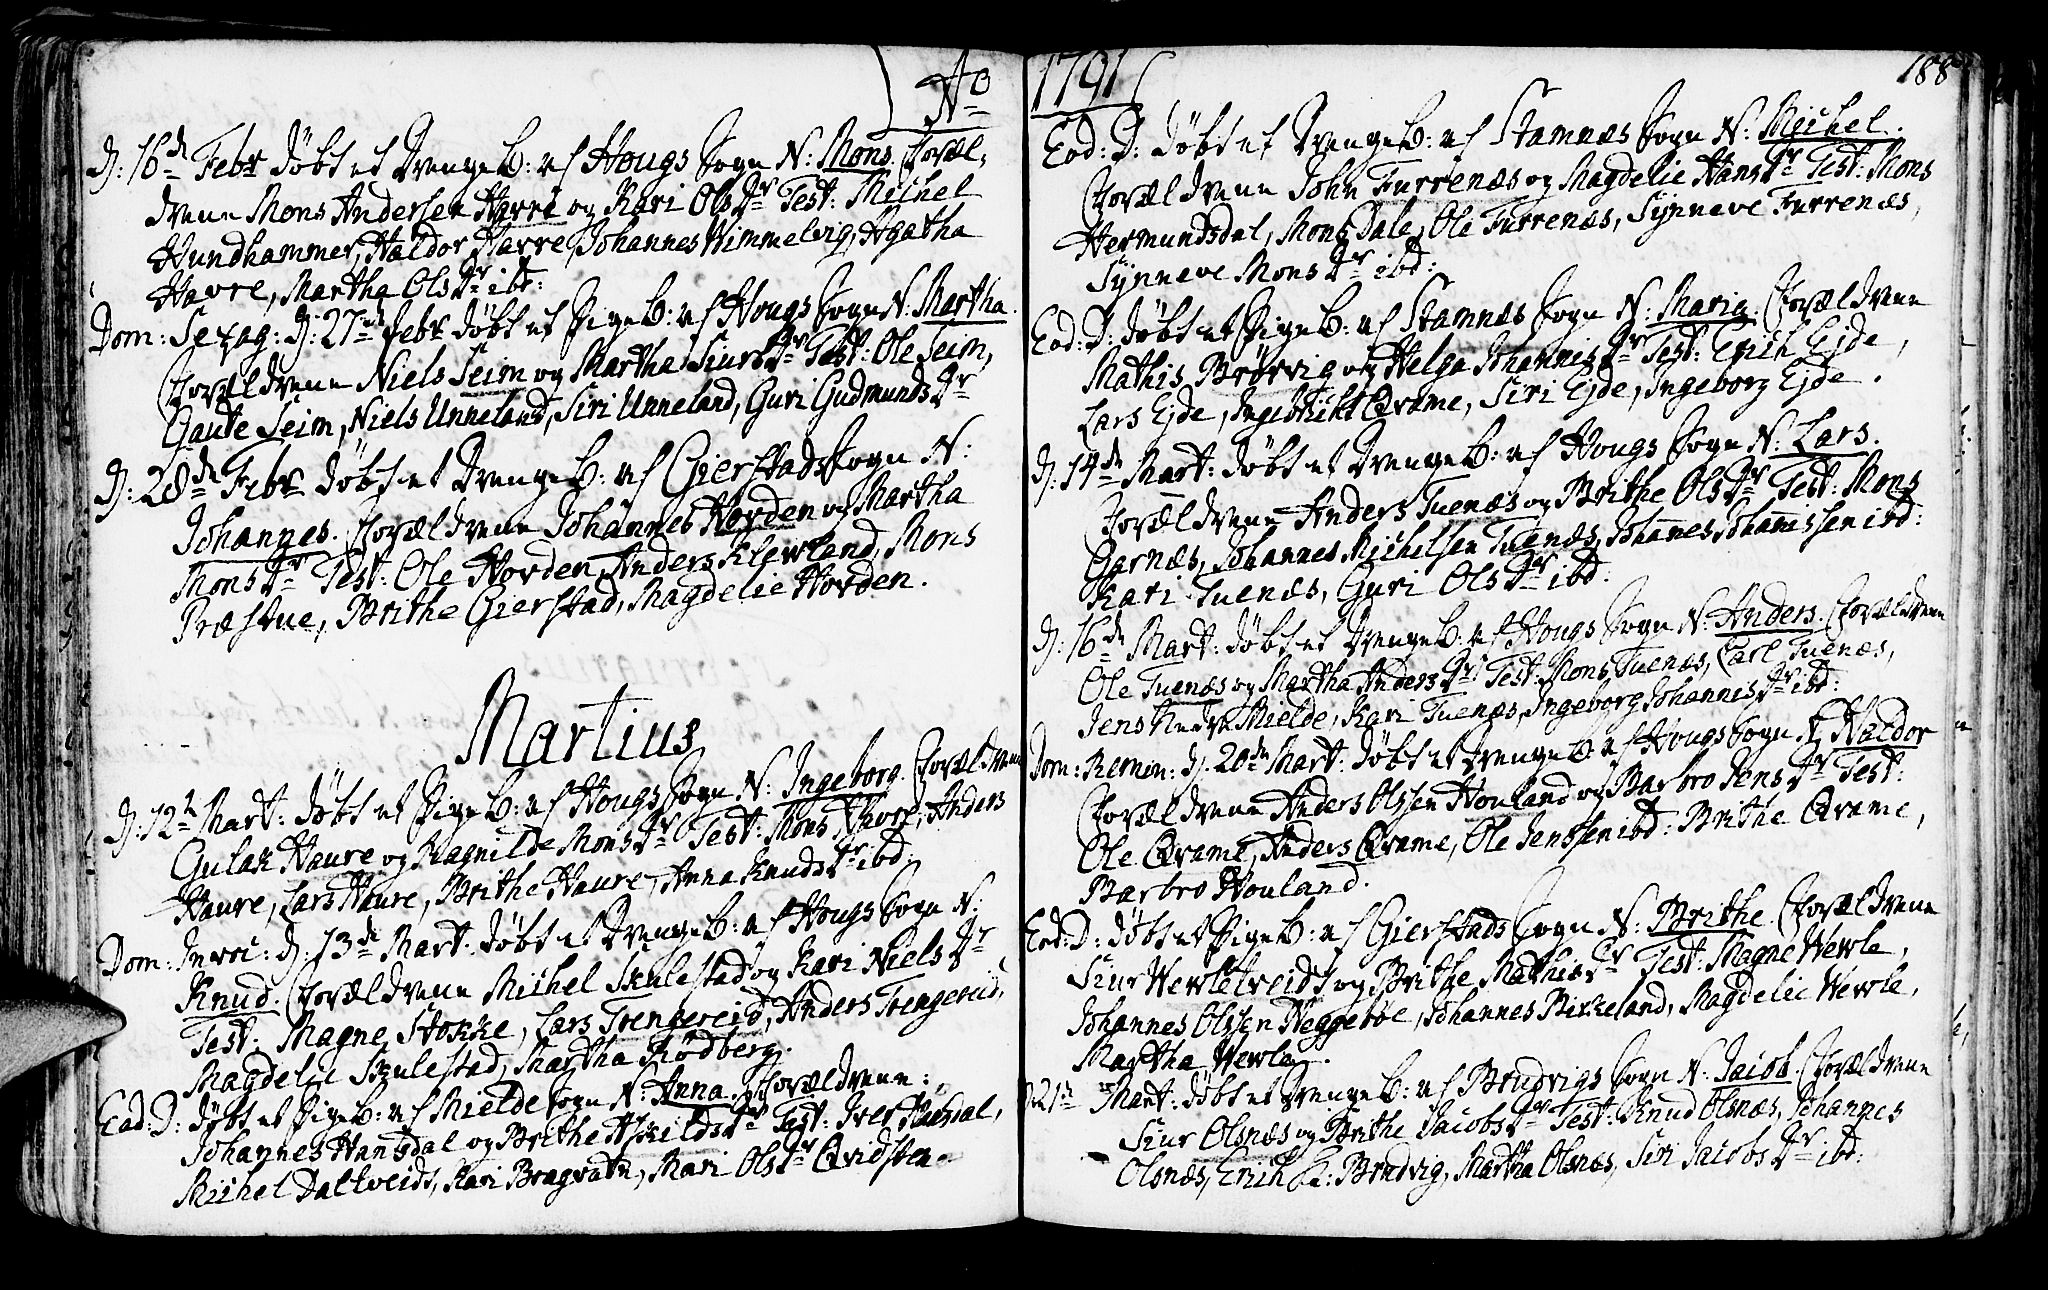 Ao
D: 16de Febr døbt et DrengeB: af Hougs Sogn N: Mons. Foræl-
drene Mons Andersen Havre og Kari OlsDr Test: Michel
Hundhammer, Haldor Havre, Johannes Himmelvig, Agatha
Havre, Martha OlsDr ibd:
Dom: Sexag: D: 27de Febr døbt et PigeB: af Hougs Sogn N: Martha.
Forældrene Niels Seim og Martha SiursDr Test: Ole Seim,
Gaute Seim, Niels Unneland, Siri Unneland, Guri GudmundsDr
D: 28de Febr døbt et DrengeB: af Gierstads Sogn N:
Johannes. Forældrene Johannes Horden og Martha
MonsDr Test: Ole Horden, Anders Klewland, Mons
Præstue, Brithe Gierstad, Magdelie Horden.
Martius
D: 12te Mart: døbt et PigeB: af Hougs Sogn N: Ingeborg. Forældrene
Gulak Havre og Ragnilde MonsDr Test: Mons Thore, Anders
Havre, Lars Havre, Brithe Havre, Anna KnudsDr ibd:
Dom: Invoc: D: 13de Mart: døbt et DrengeB: af Hougs Sogn N:
Knud. Forældrene Michel Skulestad og Kari NielsDr
Test: Magne Stokke, Lars Trengereid, Anders Trengereid,
Magdelie Skulestad, Martha Rødberg.
Eod: D: døbt et PigeB: af Mielde Sogn N: Anna. Forældrene:
Johannes Hansdal og Brithe AskildsDr Test: Iver
Michel Daltveidt, Kari Bragvatn, Mari OlsDr Qvidsten.
1791
188
Eod: D: døbt et DrengeB: af Stamnæs Sogn N: Michel.
Forældrene John Furrenæs og Magdelie HansDr Test: Mons
Hermundsdal, Mons Dale, Ole Furrenæs, Synneve Furrenæs,
Synneve MonsDr ibd:
Eod: D: døbt et PigeB: af Stamnæs Sogn N: Maria. Forældrene
Mathis Brørvig og Helga JohannisDr Test: Erich Ejde,
Lars Ejde, Ingebrikt Qvame, Siri Ejde, Ingeborg Ejde.
D: 14de Mart: døbt et DrengeB: af Hougs Sogn N: Lars.
Forældrene Anders Tuenæs og Brithe OlsDr Test: Mons
Garnæs, Johannes Michelsen Tuenæs, Johanes Johanissen ibd:
Kari Tuenæs, Guri OlsDr ibd:
D: 16de Mart: døbt et DrengeB: af Hougs Sogn N: Anders. Forældrene
Ole Tuenæs og Martha AndersDr Test: Mons Tuenæs, Carl Tuenæs,
Jens Nedre Mielde, Kari Tuenæs, Ingeborg JohannisDr ibd:
Dom: Remin: D: 20de Mart: døbt et DrengeB: af Hougs Sogn N: Haldor
Forældrene Anders Olssen Houland og Barbro JensDr Test:
Ole Qvame, Anders Qvame, Ole Jenssen ibd: Brithe Qvame,
Barbro Houland.
Eod: D: døbt et PigeB: af Gierstads Sogn N: Brithe. Forældrene
Siur Wewletveidt og Brithe MathisDr Test: Magne Wewle,
Johannes Olssen Heggebøe, Johannes Birkeland, Magdelie Wewle,
Martha Wewle.
D: 21de Mart: døbt et DrengeB: af Brudvigs Sogn N: Jacob. Forældrene
Siur Olsnæs og Brithe JacobsDr Test: Knud Olsnæs, Johannes
Olsnæs, Erich L: Brudvig, Martha Olsnæs, Siri JacobsDr ibd: